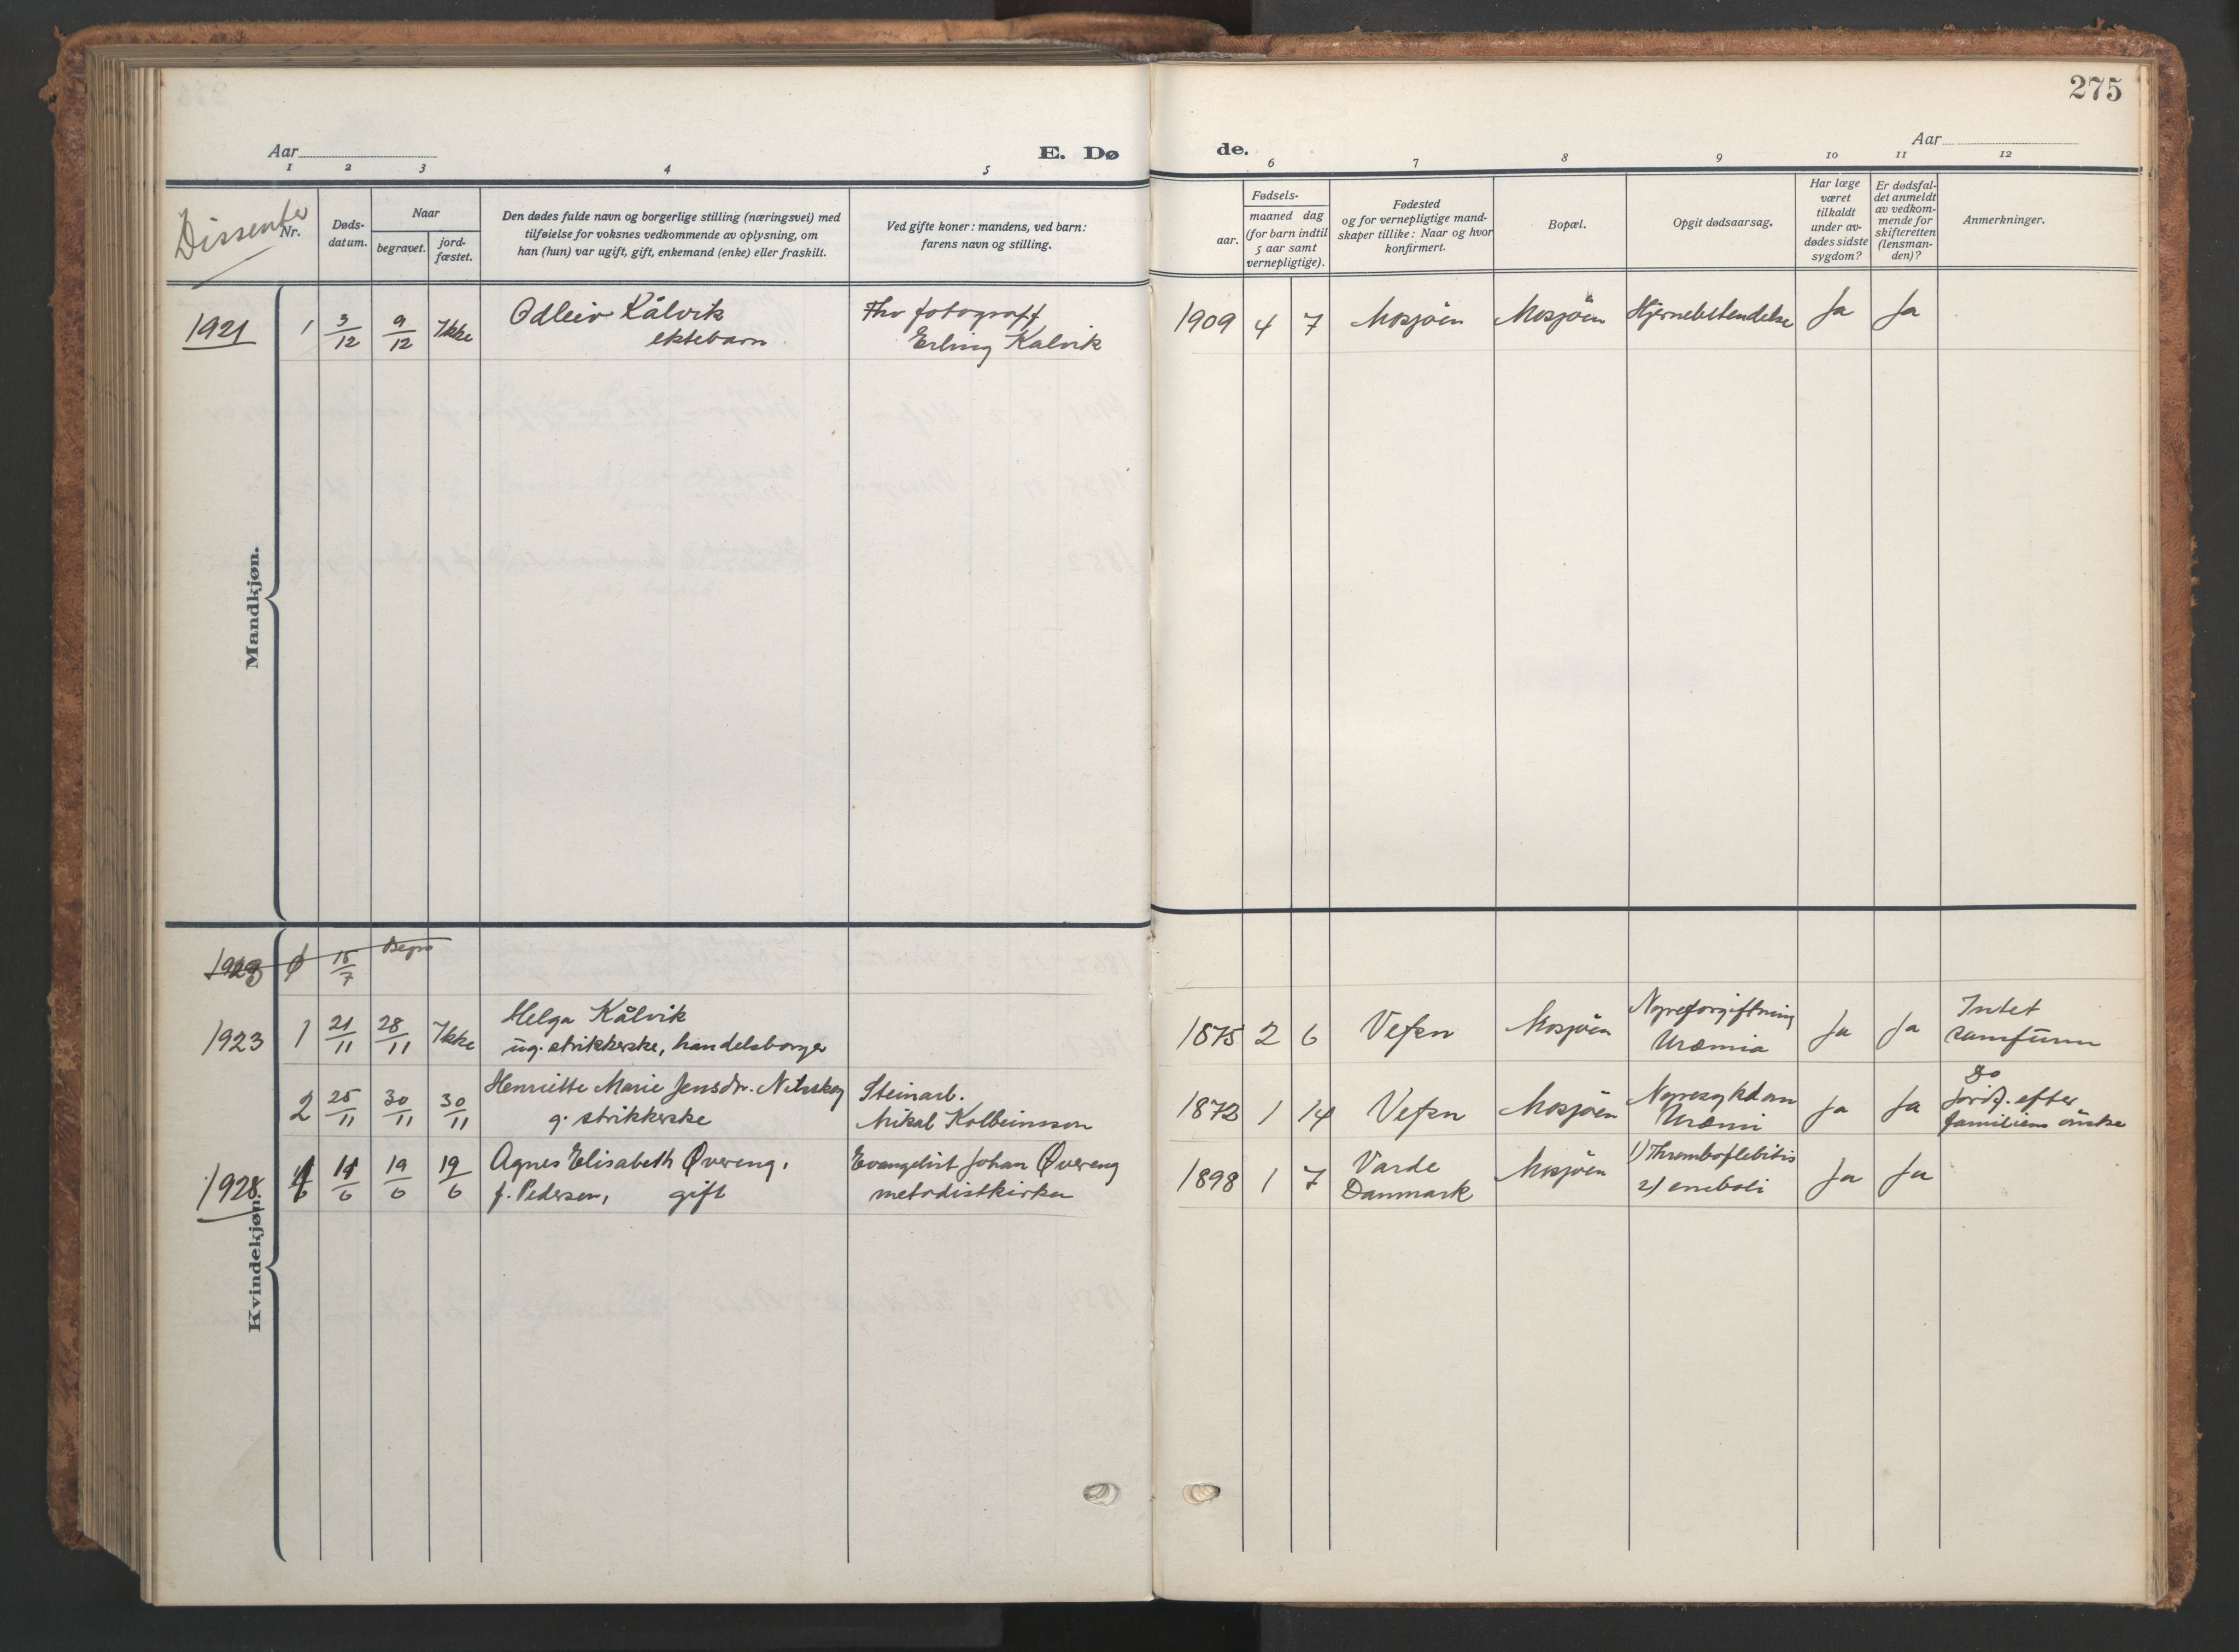 275
Aar
E. Dø
de.
Aar
1 2 3 4 5 6 7 8 9 10 11 12
Dissenter
Nr.
Døds-
datum.
Naar
begravet.
jord-
fæstet.
Den dødes fulde navn og borgerlige stilling (næringsvei) med
tilføielse for voksnes vedkommende av oplysning, om
han (hun) var ugift, gift, enkemand (enke) eller fraskilt.
Ved gifte koner: mandens, ved barn:
farens navn og stilling.
Fødsels-
aar.
maaned dag
(for barn indtil
5 aar samt
vernepligtige).
Fødested
og for vernepligtige mand-
skaper tillike: Naar og hvor
konfirmert.
Bopæl.
Opgit dødsaarsag.
Har læge
været
tilkaldt
under av-
dødes sidste
sygdom?
Er dødsfal-
det anmeldt
av vedkom-
mende for
skifteretten
(lensman-
den)?
Anmerkninger.
Mandkjøn.
1921 1 3/12 9/12 Ikke Odleiv Kålvik
ektebarn
Fhv fotograff
Erling Kalvik
1909 4 7 Mosjøen Mosjøen Hjernebetendelse Ja Ja
Kvindekjøn.
15/7 Begr
1923 1 21/11 28/11 Ikke Helga Kålvik
ug. strikkerske, handelsborger
1875 2 6 Vefsn Mosjöen Nyreforgiftning
Uræmia
Ja Ja Intet
samfunn
2 25/11 30/11 30/11 Henriette Marie Jensdr.
g. strikkerske
Steinarb.
Mikal Kolbeinsson
1872 1 14 Vefsn Mosjöen Nyresykdom
Uræmi
Ja Ja Do
Jordf. efter
familiens önske
1928 19/6 19/6 Agnes Elisabeth Øvereng,
f. Pedersen, gift
Evangelist Johan Øvereng
metodistkirken
1898 1 7 Varde
Danmark
Mosjöen 1) Thromboflebitis
2) emboli
Ja Ja